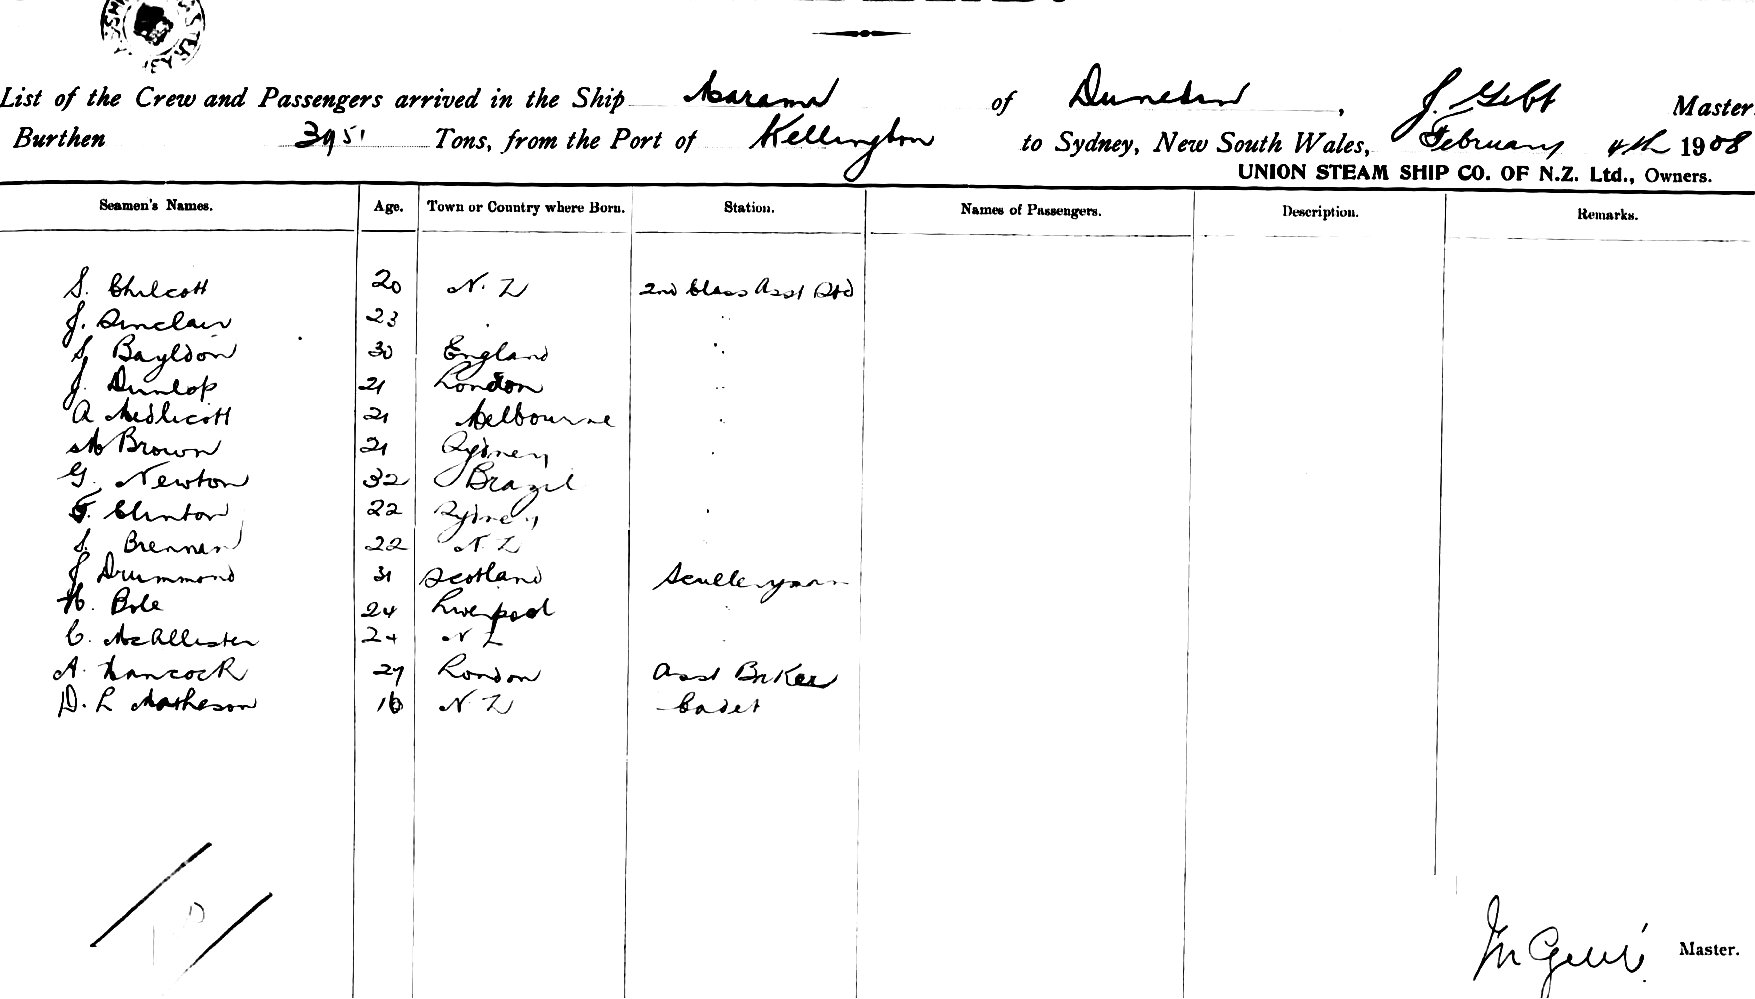 List of the Crew and Passengers arrived in the Ship Marama of Dunedin, J. Gibb Master.
Burthen 3951 Tons, from the Port of Wellington to Sydney, New South Wales, February 4th 1908
UNION STEAM SHIP CO. OF N.Z. Ltd., Owners.
Seamen's Names. Age. Town or Country where Born. Station. Names of Passengers. Description. Remarks.
S. Chilcott 20 N.Z 2nd Class Asst Std
J. Sinclair 23 " "
S Bayldon 30 England "
J. Dunlop 21 London "
A Medlicott 21 Melbourne "
M Brown 21 Sydney "
G. Newton 32 Brazil
F. Clinton 22 Sydney "
S. Brennan 22 N.Z
J Drummond 31 Scotland Sculleryman
H. Bole 24 Liverpool "
C. McAllister 24 N Z "
A. Hancock 27 London Asst Baker
D. L Matheson 16 N Z Cadet
Master.